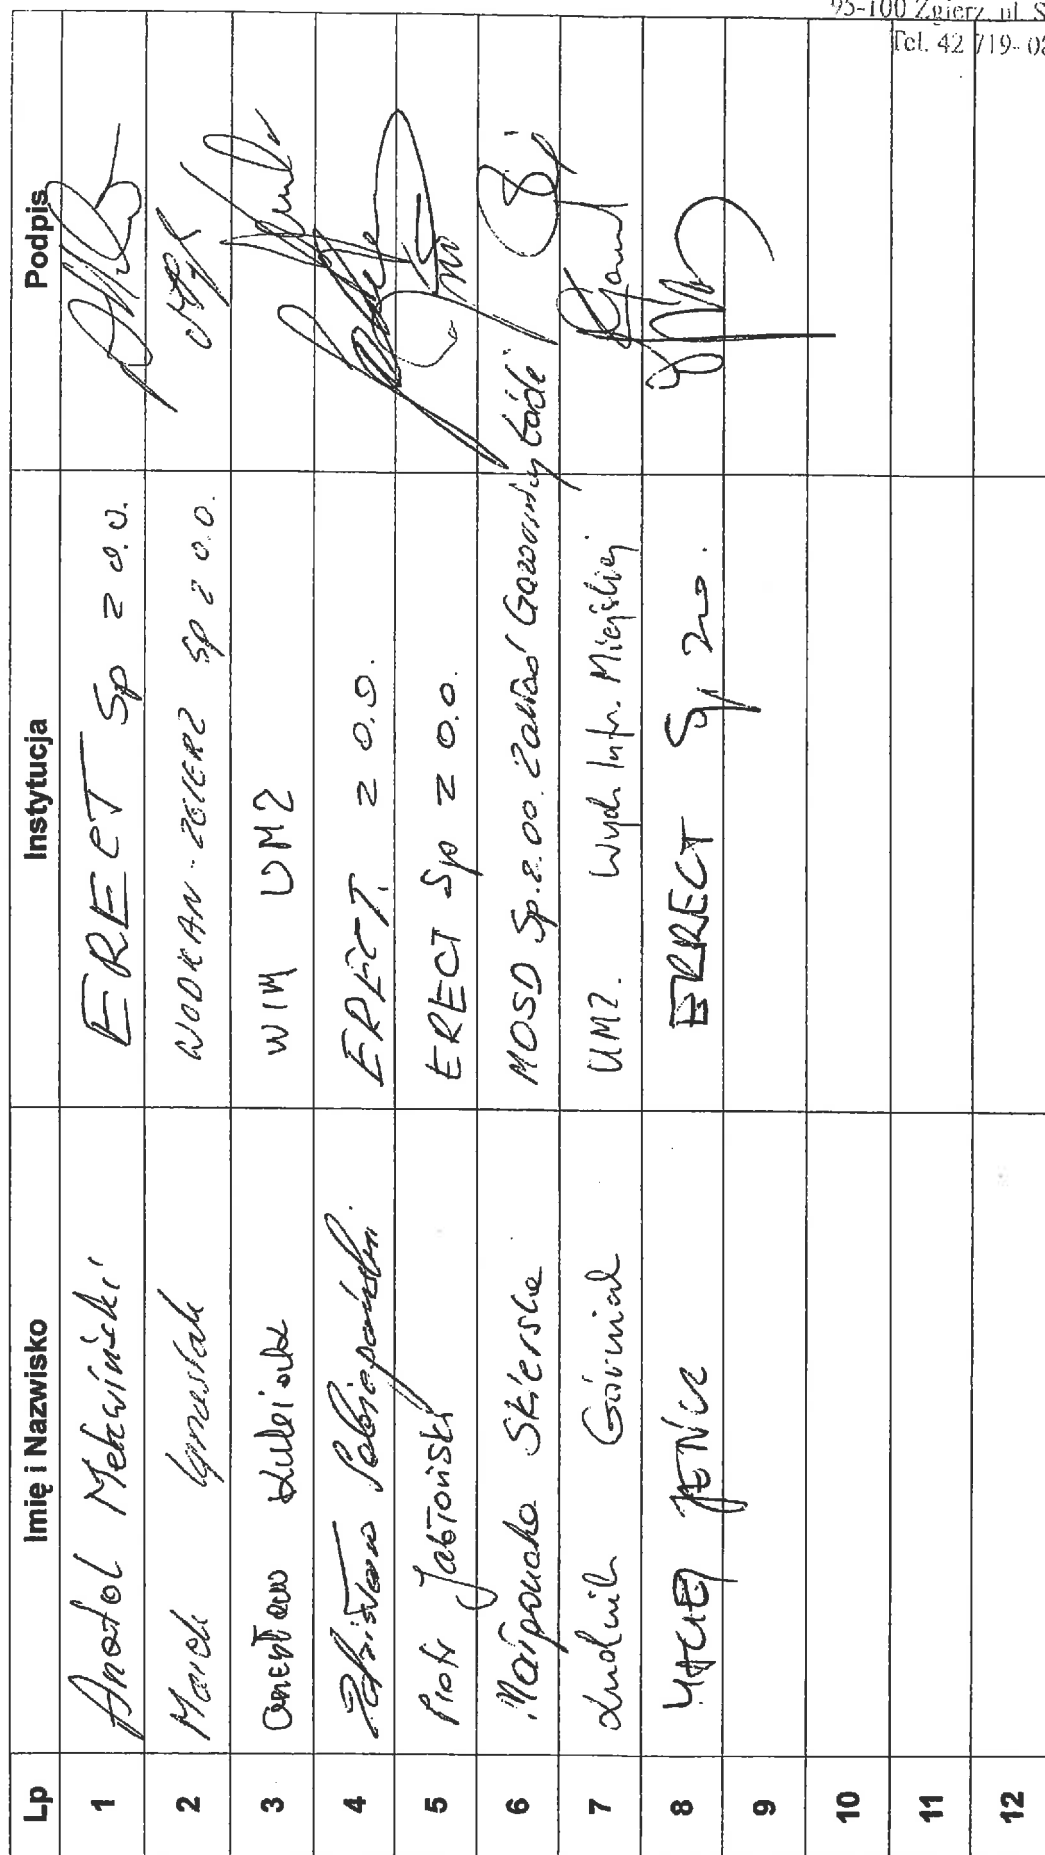 95-100 Zgierz, ul. S
Tel. 42 719-08
Lp Imię i Nazwisko Instytucja Podpis
1 Anatol Mekwiński ERECT Sp z o.o.
2 Marek WODKAN-ZGIERZ Sp z o.o.
3 WIM UMZ
4 Zdzisław ERECT. z o.o.
5 Piotr Jabłoński ERECT Sp z o.o.
6 Małgorzata Skierska MOSD Sp. z o.o. Zakład Gazowniczy Łódź
7 Ludwik Górniak UMZ. Wydz. Infr. Miejskiej
8 MACIEJ ERRECT Sp. zoo.
9
10
11
12